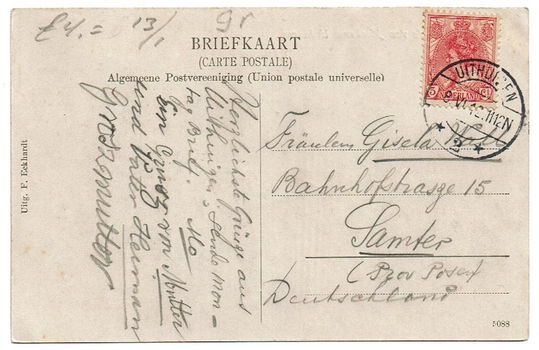 £4.= 13/1 gr
BRIEFKAART
(CARTE POSTALE)
Algemeene Postvereeniging (Union postale universelle)
UITHUIZEN
Herzlichste Grüsze aus
Uithuizen. Sende Mon-
tag Brief.
Ein Grusz von Mutter
und Vater Herman
Groszmutter
Fräulein Gisela
Bahnhofstrasze 15
Samter
(Prov Posen)
Deutschland
Uitg. F. Eekhardt
5088